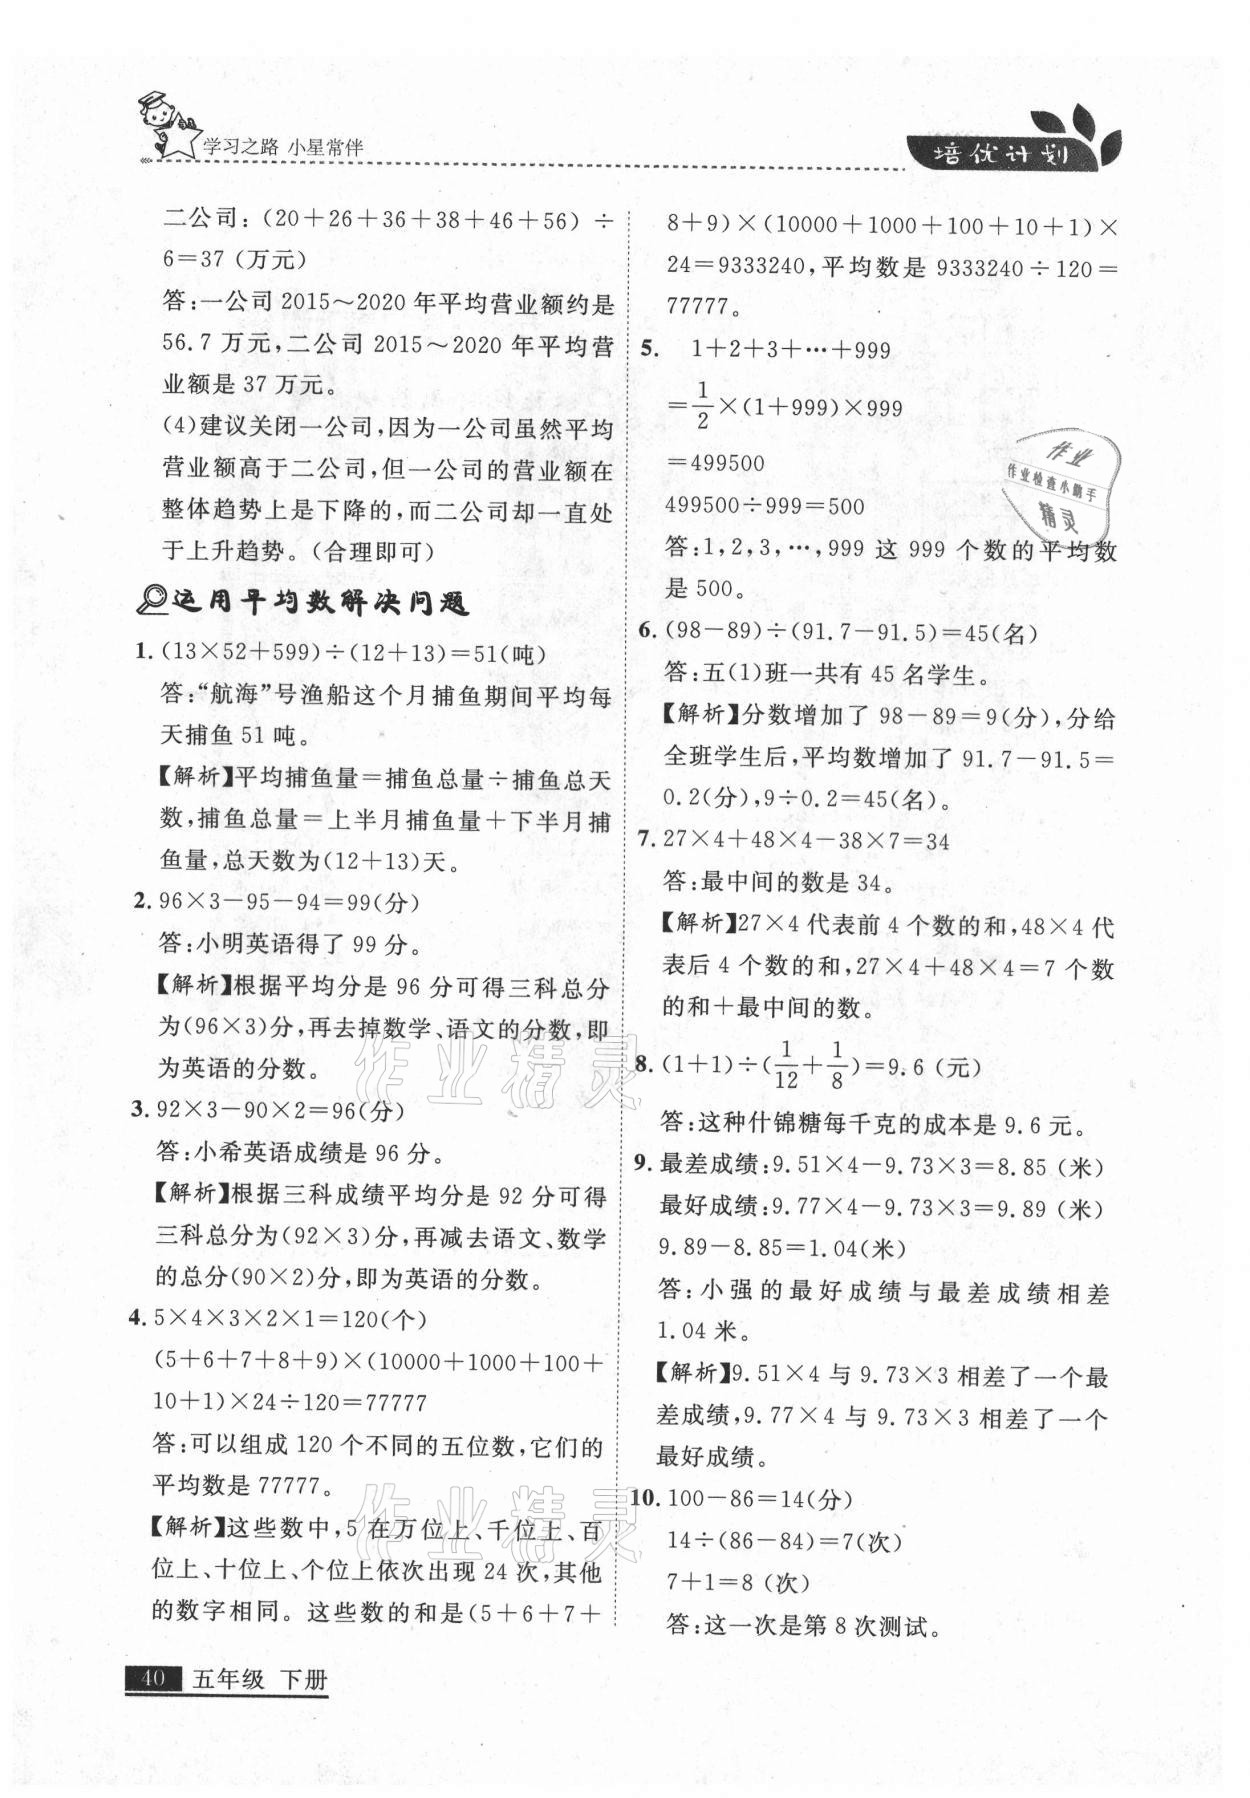 学习之路 小星常伴
培优计划
二公司:(20+26+36+38+46+56)÷
6=37(万元)
答:一公司 2015~2020 年平均营业额约是
56.7 万元,二公司 2015~2020 年平均营
业额是 37 万元。
(4)建议关闭一公司,因为一公司虽然平均
营业额高于二公司,但一公司的营业额在
整体趋势上是下降的,而二公司却一直处
于上升趋势。(合理即可)
运用平均数解决问题
1. (13×52+599)÷(12+13)=51(吨)
答:“航海”号渔船这个月捕鱼期间平均每
天捕鱼 51 吨。
【解析】平均捕鱼量=捕鱼总量÷捕鱼总天
数,捕鱼总量=上半月捕鱼量+下半月捕
鱼量,总天数为(12+13)天。
2. 96×3-95-94=99(分)
答:小明英语得了 99 分。
【解析】根据平均分是 96 分可得三科总分
为(96×3)分,再去掉数学、语文的分数,即
为英语的分数。
3. 92×3-90×2=96(分)
答:小希英语成绩是 96 分。
【解析】根据三科成绩平均分是 92 分可得
三科总分为(92×3)分,再减去语文、数学
的总分(90×2)分,即为英语的分数。
4. 5×4×3×2×1=120(个)
(5+6+7+8+9)×(10000+1000+100+
10+1)×24÷120=77777
答:可以组成 120 个不同的五位数,它们的
平均数是 77777。
【解析】这些数中,5 在万位上、千位上、百
位上、十位上、个位上依次出现 24 次,其他
的数字相同。这些数的和是(5+6+7+
8+9)×(10000+1000+100+10+1)×
24=9333240,平均数是 9333240÷120=
77777。
5. 1+2+3+…+999
=1/2×(1+999)×999
=499500
499500÷999=500
答:1,2,3,…,999 这 999 个数的平均数
是 500。
6. (98-89)÷(91.7-91.5)=45(名)
答:五(1)班一共有 45 名学生。
【解析】分数增加了 98-89=9(分),分给
全班学生后,平均数增加了 91.7-91.5=
0.2(分),9÷0.2=45(名)。
7. 27×4+48×4-38×7=34
答:最中间的数是 34。
【解析】27×4 代表前 4 个数的和,48×4 代
表后 4 个数的和,27×4+48×4=7 个数
的和+最中间的数。
8. (1+1)÷(1/12+1/8)=9.6(元)
答:这种什锦糖每千克的成本是 9.6 元。
9. 最差成绩:9.51×4-9.73×3=8.85(米)
最好成绩:9.77×4-9.73×3=9.89(米)
9.89-8.85=1.04(米)
答:小强的最好成绩与最差成绩相差
1.04 米。
【解析】9.51×4 与 9.73×3 相差了一个最
差成绩,9.77×4 与 9.73×3 相差了一个
最好成绩。
10. 100-86=14(分)
14÷(86-84)=7(次)
7+1=8(次)
答:这一次是第 8 次测试。
作业
作业检查小助手
精灵
作业精灵
作业精灵
40 五年级 下册